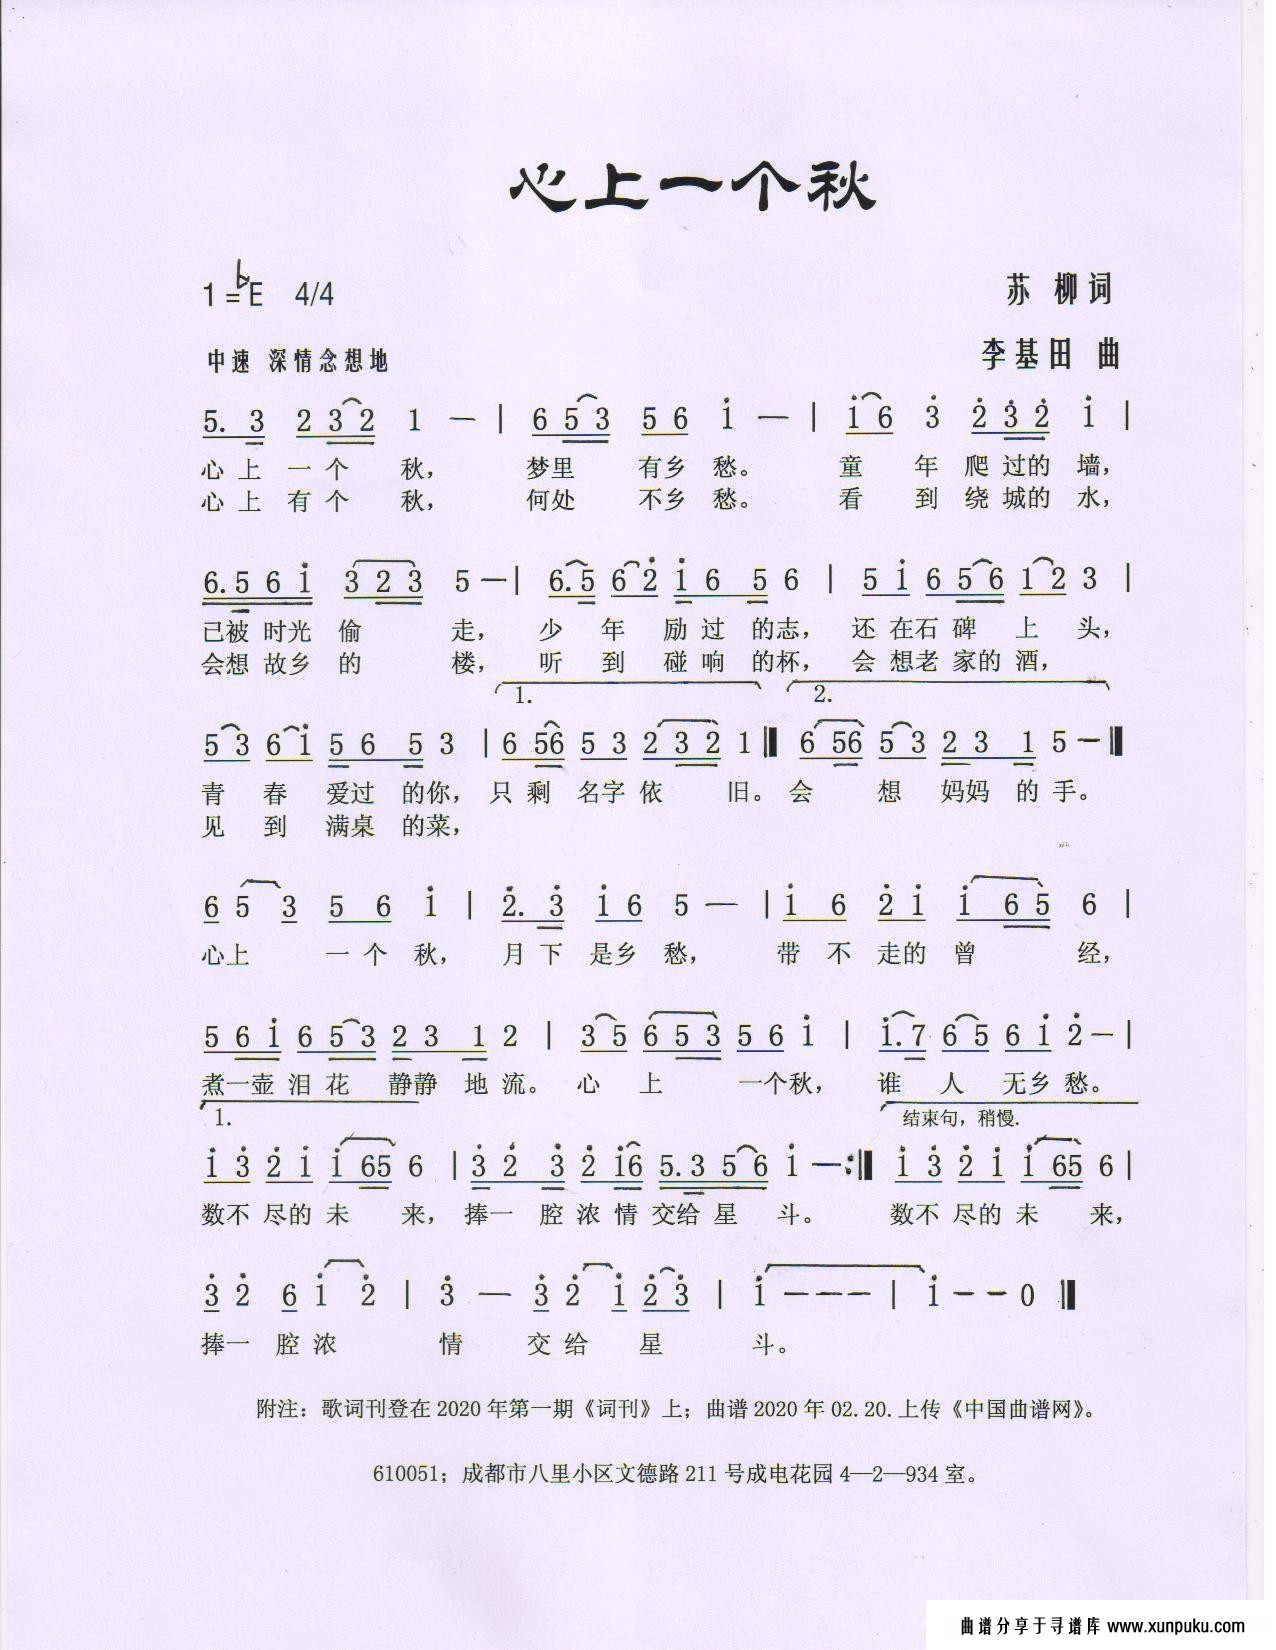 心上一个秋
1=♭E 4/4
苏 柳词
中速 深情念想地
李基田 曲
5. 3 2 3 2 1 — | 6 5 3 5 6 i — | i 6 3 2 3 2 i |
心上一个 秋， 梦里 有乡愁。 童 年爬过的墙，
心上有个 秋， 何处 不乡愁。 看 到绕城的水，
6.5 6 i 3 2 3 5 — | 6.5 6 2 i 6 5 6 | 5 i 6 5 6 1 2 3 |
已被时光偷 走， 少 年 励过 的志， 还在石碑 上 头，
会想故乡的 楼， 听 到 碰响 的杯， 会想老家的酒，
1. 2.
5 3 6 i 5 6 5 3 | 6 56 5 3 2 3 2 1 :‖ 6 56 5 3 2 3 1 5 — ‖
青 春 爱过 的你， 只剩 名字依 旧。 会 想 妈妈 的手。
见 到 满桌 的菜，
6 5 3 5 6 i | 2. 3 i 6 5 — | i 6 2 i i 6 5 6 |
心上 一个秋， 月下是乡愁， 带不走的曾 经，
5 6 i 6 5 3 2 3 1 2 | 3 5 6 5 3 5 6 i | i.7 6 5 6 i 2 — |
煮一壶泪花 静静 地流。 心 上 一个秋， 谁 人 无乡愁。
1. 结束句，稍慢.
i 3 2 i i 65 6 | 3 2 3 2 i6 5.3 5 6 i — :‖ i 3 2 i i 65 6 |
数不尽的未 来， 捧一 腔浓情交给星 斗。 数不尽的未 来，
3 2 6 i 2 | 3 — 3 2 i 2 3 | i — — — | i — — 0 ‖
捧一 腔浓 情 交给 星 斗。
附注：歌词刊登在2020年第一期《词刊》上；曲谱2020年02.20.上传《中国曲谱网》。
610051；成都市八里小区文德路211号成电花园4—2—934室。
曲谱分享于寻谱库 www.xunpuku.com